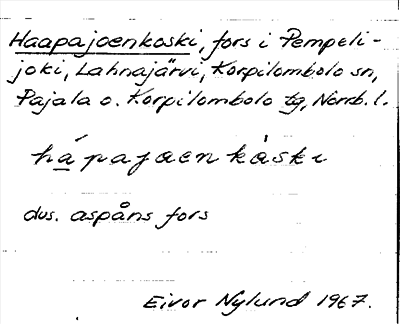 Haapajoenkoski, fors i Pempeli-
joki, Lahnajärvi, Korpilombolo sn,
Pajala o. Korpilombolo tg, Norrb. l.
há̱pajaen kȧski
dvs. aspåns fors
Eivor Nylund 1967.